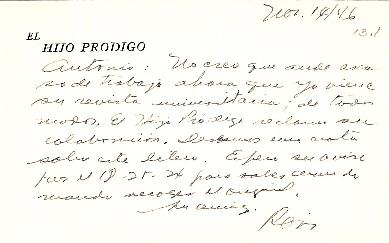 Nov. 14/46
13.1
EL
HIJO PRODIGO
Antonio: No creo que ande
so de trabajo ahora que ya viene
su revista universitaria; de todos
modos, El Hijo Pródigo reclama su
colaboración. Deseamos una nota
sobre este libro. Espero su aviso
por el 18-25-24 para saber
mando recoger el original.
Su amigo,